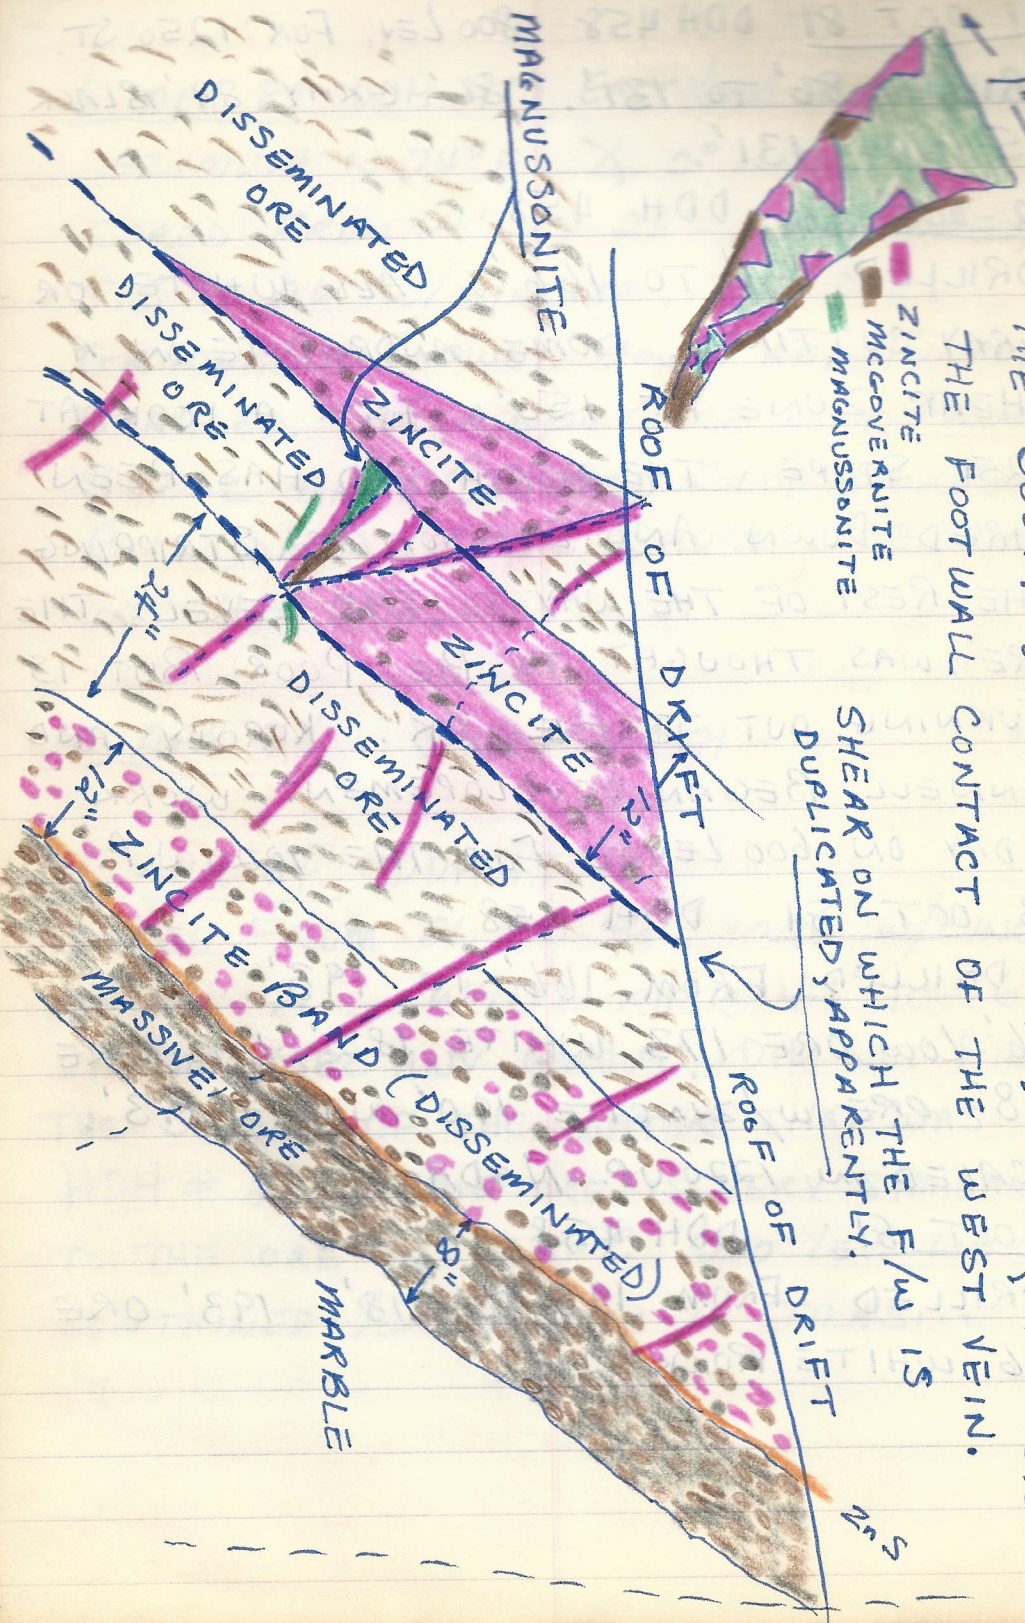 THE FOOTWALL CONTACT OF THE WEST VEIN.
ZINCITE
MCGOVERNITE
MAGNUSSONITE
SHEAR ON WHICH THE F/W IS
DUPLICATED, APPARENTLY.
ROOF OF DRIFT
ROOF OF DRIFT
MAGNUSSONITE
ZnS
ZINCITE
ZINCITE
12"
DISSEMINATED
ORE
DISSEMINATED
ORE
DISSEMINATED
ORE
24"
12"
ZINCITE BAND (DISSEMINATED)
8"
MASSIVE ORE
MARBLE